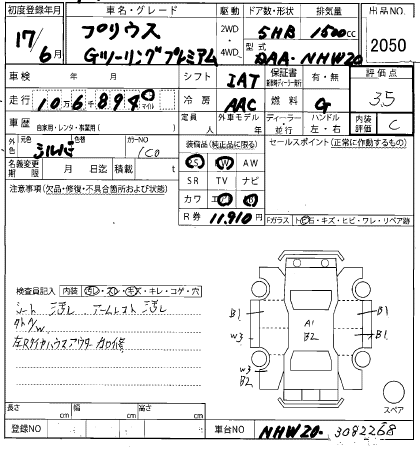 初度登録年月 車名・グレード 駆動 ドア数・形状 排気量 出品NO.
17/6月 プリウス 2WD 5HB 1500cc
Gツーリングプレミアム 4WD 型式 DAA-NHW20 2050
車検 年 月 シフト IAT 保証書 有・無 評価点
走行 10万6千894 マイル 冷房 AAC 燃料 G 3.5
車歴 自家用・レンタ・事業用( ) 定員 人 外車モデル 年 ディーラー・並行 ハンドル 左・右 内装評価 C
外色 元色 シルバー 色替 カラーNO 1C0 装備品 (純正品に限る) セールスポイント (正常に作動するもの)
名義変更期限 月 日迄 積載 t PS PW AW
注意事項 (欠品・修復・不具合箇所および状態) SR TV ナビ
カワ
R券 11,910円 Fガラス ト(ビ)石・キズ・ヒビ・ワレ・リペア跡
検査員記入 内装 汚レ・スレ・キズ・キレ・コゲ・穴
シート 汚レ アームレスト 汚レ
左Rタイヤハウスアウタ 加修
B1 B1
A1
B2
B1
W3 W3
W3
B2
スペア
長さ cm 幅 cm 高さ cm
登録NO 車台NO NHW20-3082268